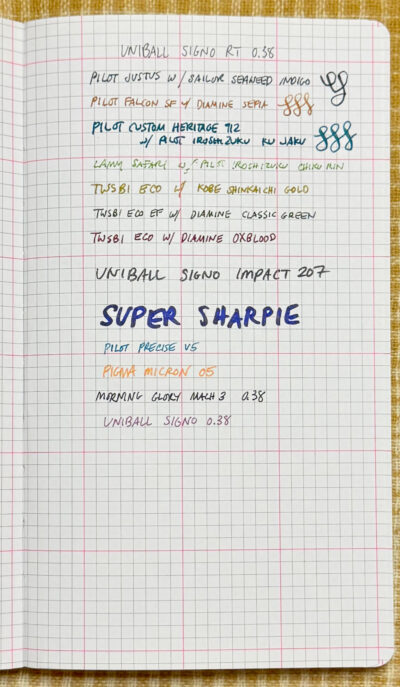 UNIBALL SIGNO RT 0.38
PILOT JUSTUS W/ SAILOR SEAWEED INDIGO
PILOT FALCON SF W/ DIAMINE SEPIA
PILOT CUSTOM HERITAGE 912
W/ PILOT IROSHIZUKU KU JAKU
LAMY SAFARI W/ PILOT IROSHIZUKU CHIKU RIN
TWSBI ECO W/ KOBE SHINKAICHI GOLD
TWSBI ECO EF W/ DIAMINE CLASSIC GREEN
TWSBI ECO W/ DIAMINE OXBLOOD
UNIBALL SIGNO IMPACT 207
SUPER SHARPIE
PILOT PRECISE V5
PIGMA MICRON 05
MORNING GLORY MACH 3 0.38
UNIBALL SIGNO 0.38